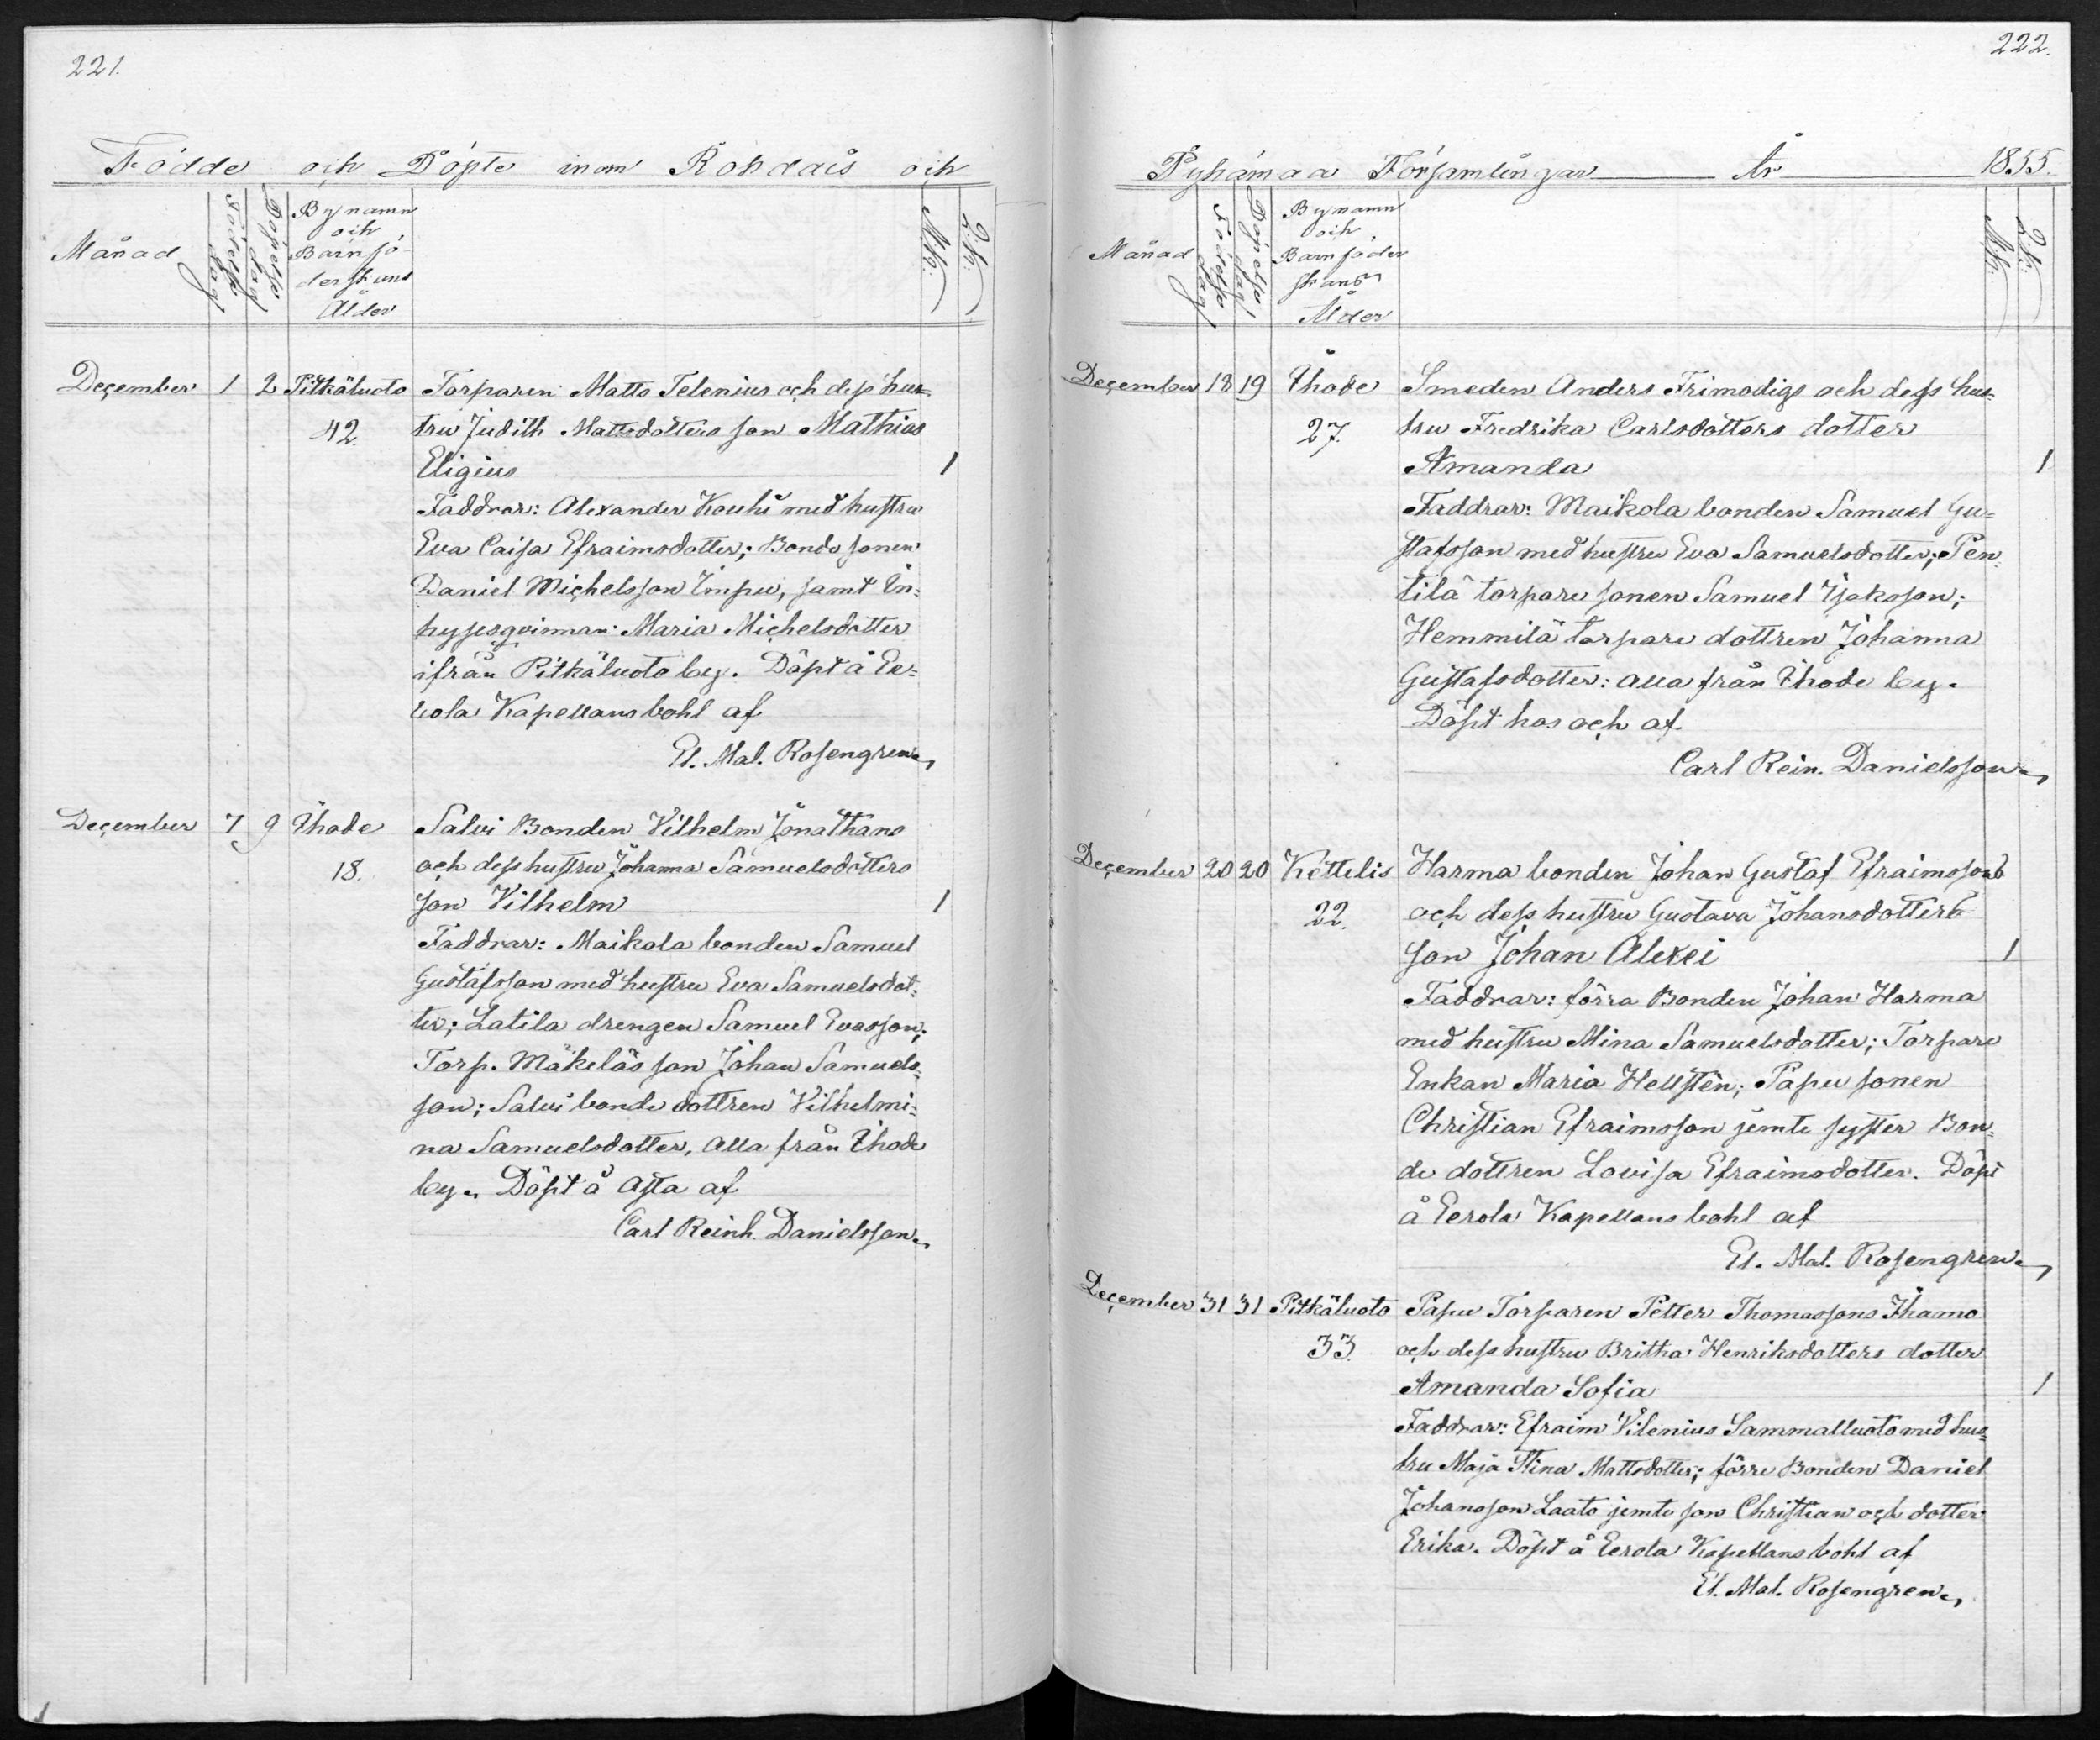 221.
Födde och Döpte inom Rohdais och
Månad
Födelse dag
Döpelse dag
Bynamn
och
Barnsö-
derskans
Ålder
M.k.
Q.k.
December 1 2 Pitkäluoto Torparen Matts Telenius och dess hus-
42. tru Judith Mattsdotters son Mathias
Eligius 1
Faddrar: Alexander Kouhi med hustru
Eva Caisa Efraimsdotter; Bonde sonen
Daniel Michelsson Impu, samt In-
hysesqvinnan: Maria Michelsdotter
ifrån Pitkäluoto by. Döpt å Ee-
rola Kapellans bohl af
El. Mal. Rosengren.
December 7 9 Ihode Salvi Bonden Vilhelm Jonathans
18. och dess hustru Johanna Samuelsdotters
son Vilhelm 1
Faddrar: Maikola bonden Samuel
Gustafsson med hustru Eva Samuelsdot-
ter; Latila drengen Samuel Evasson;
Torp. Mäkeläs son Johan Samuels-
son; Salvi bonde dottren Vilhelmi-
na Samuelsdotter, alla från Ihode
by. Döpt å Asta af
Carl Reinh. Danielsson.
222.
Pyhämaa Församlingar År 1855.
Månad
Födelse dag
Döpelse dag
Bynamn
och
Barnsöder
skans
Ålder
M.k.
Q.k.
December 18 19 Ihode Smeden Anders Frimodigs och dess hus-
27. tru Fredrika Carlsdotters dotter
Amanda 1
Faddrar: Maikola bonden Samuel Gu-
stafsson med hustru Eva Samuelsdotter; Pen-
tilä torpare sonen Samuel Isaksson;
Hemmilä torpare dottren Johanna
Gustafsdotter: alla från Ihode by.
Döpt hos och af
Carl Rein. Danielsson.
December 20 20 Kettelis Harma bonden Johan Gustaf Efraimssons
22. och dess hustru Gustava Johansdotters
son Johan Alexei 1
Faddrar: förra Bonden Johan Harma
med hustru Mina Samuelsdotter; Torpare
Enkan Maria Hellstén; Papu sonen
Christian Efraimsson jemte syster Bon-
de dottren Lovisa Efraimsdotter. Döpt
å Eerola Kapellans bohl af
El. Mal. Rosengren.
December 31 31 Pitkäluoto Papu Torparen Petter Thomassons Ihamo
33. och dess hustru Britha Henriksdotters dotter
Amanda Sofia 1
Faddrar: Efraim Vilenius Sammalluoto med hus-
tru Maja Stina Mattsdotter; förre Bonden Daniel
Johansson Laato jemte son Christian och dotter
Erika. Döpt å Eerola Kapellans bohl af
El. Mal. Rosengren.